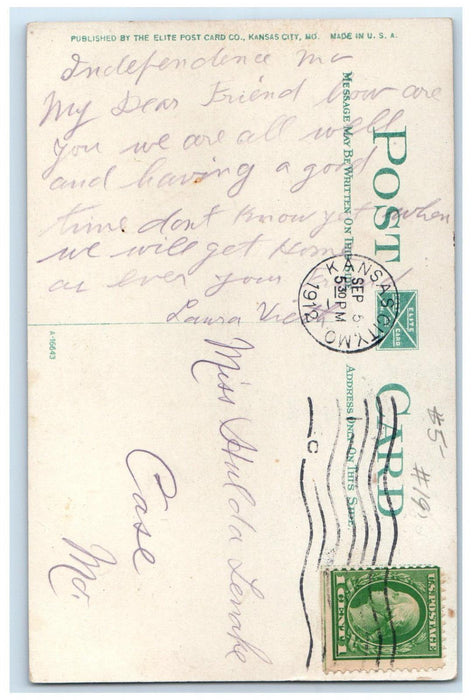 PUBLISHED BY THE ELITE POST CARD CO., KANSAS CITY, MO. MADE IN U. S. A.
Independence Mo
My Dear Friend how are
you we are all well
and having a good
time dont know yet when
we will get home
as ever your
Laura
POST CARD
MESSAGE MAY BE WRITTEN ON THIS SIDE
ADDRESS ONLY ON THIS SIDE
ELITE
CARD
KANSAS CITY, MO.
SEP 5
530 PM
1912
C
A-16643
Miss Hulda
Case
Mo.
#5
#19
U.S. POSTAGE
1 CENT 1